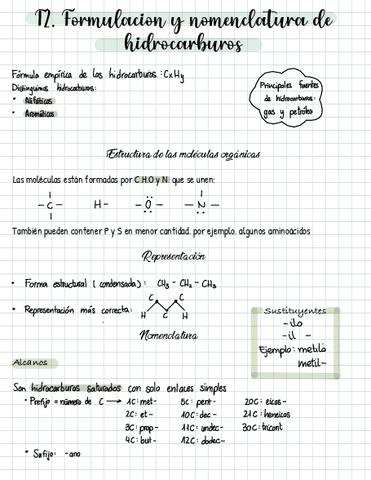 T2. Formulacion y nomenclatura de
hidrocarburos
Fórmula empírica de los hidrocarburos: CxHy
Distinguimos hidrocarburos:
• Alifáticos
• Aromáticos
Principales fuentes
de hidrocarburos:
gas y petróleo
Estructura de las moléculas orgánicas
Las moléculas están formadas por C,H,O y N que se unen:
- C - H - - O - - N -
También pueden contener P y S en menor cantidad, por ejemplo, algunos aminoácidos
Representación
• Forma estructural (condensada): CH3 - CH2 - CH3
• Representación más correcta: H C C C H
Nomenclatura
Sustituyentes
- ilo
- il -
Ejemplo: metilo
metil -
Alcanos
Son hidrocarburos saturados con solo enlaces simples
• Prefijo = número de C → 1C: met- 5C: pent- 20C: eicos-
2C: et- 10C: dec- 21C: heneicos
3C: prop- 11C: undec- 30C: tricont
4C: but- 12C: dodec-
• Sufijo: -ano